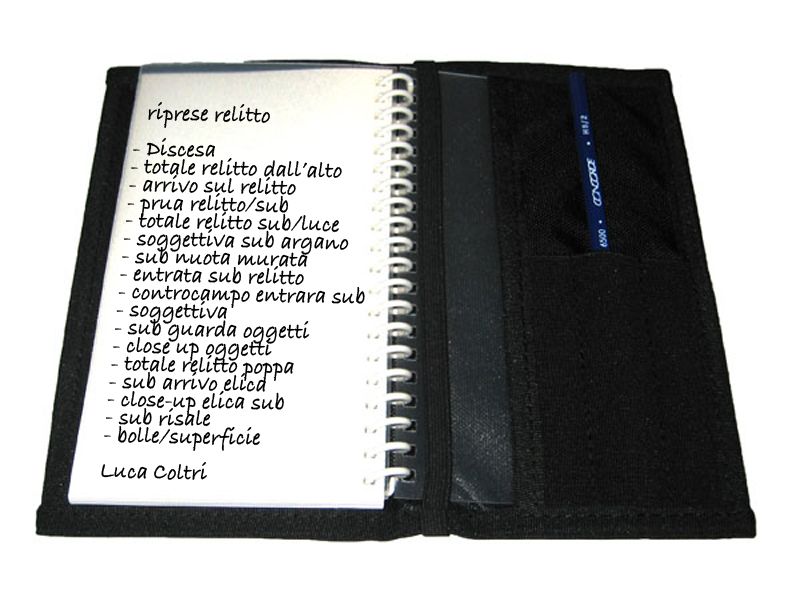 riprese relitto
- Discesa
- totale relitto dall'alto
- arrivo sul relitto
- prua relitto/sub
- totale relitto sub/luce
- soggettiva sub argano
- sub nuota murata
- entrata sub relitto
- controcampo entrara sub
- soggettiva
- sub guarda oggetti
- close up oggetti
- totale relitto poppa
- sub arrivo elica
- close-up elica sub
- sub risale
- bolle/superficie
Luca Coltri
6500 • CONCORDE • HB/2